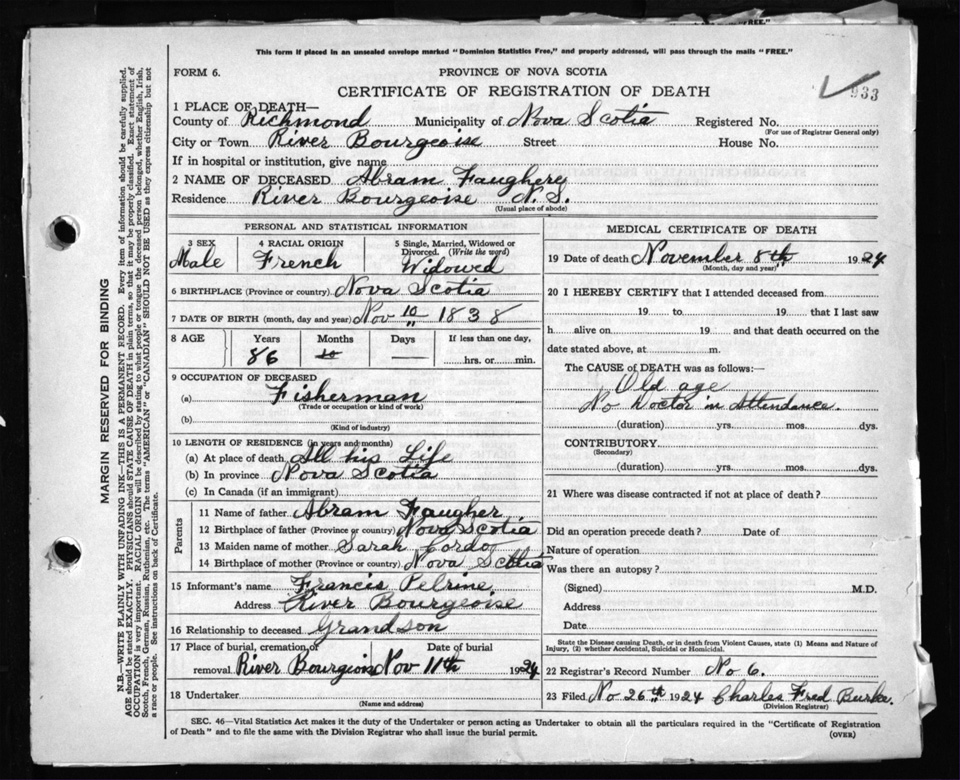 This form if placed in an unsealed envelope marked "Dominion Statistics Free," and properly addressed, will pass through the mails "FREE."
FORM 6.
PROVINCE OF NOVA SCOTIA
CERTIFICATE OF REGISTRATION OF DEATH
933
1 PLACE OF DEATH—
County of Richmond Municipality of Nova Scotia Registered No.
(For use of Registrar General only)
City or Town River Bourgeoise Street House No.
If in hospital or institution, give name
2 NAME OF DECEASED Abram Faughere
Residence River Bourgeoise N.S.
(Usual place of abode)
PERSONAL AND STATISTICAL INFORMATION
3 SEX 4 RACIAL ORIGIN 5 Single, Married, Widowed or Divorced. (Write the word)
Male French Widowed
6 BIRTHPLACE (Province or country) Nova Scotia
7 DATE OF BIRTH (month, day and year) Nov 10 1838
8 AGE Years Months Days If less than one day,
86 10 — hrs. or min.
9 OCCUPATION OF DECEASED
(a) Fisherman
(Trade or occupation or kind of work)
(b)
(Kind of industry)
10 LENGTH OF RESIDENCE (in years and months)
(a) At place of death All his Life
(b) In province Nova Scotia
(c) In Canada (if an immigrant)
Parents
11 Name of father Abram Faugher
12 Birthplace of father (Province or country) Nova Scotia
13 Maiden name of mother Sarah
14 Birthplace of mother (Province or country) Nova Scotia
15 Informant's name Francis Pelrine
Address River Bourgeoise
16 Relationship to deceased Grandson
17 Place of burial, cremation, or removal Date of burial
River Bourgeoise Nov 11th 1924
18 Undertaker
(Name and address)
MEDICAL CERTIFICATE OF DEATH
19 Date of death November 8th 1924
(Month, day and year)
20 I HEREBY CERTIFY that I attended deceased from
19 to 19 that I last saw
h alive on 19 and that death occurred on the
date stated above, at m.
The CAUSE of DEATH was as follows:—
Old age
No Doctor in Attendance.
(duration) yrs. mos. dys.
CONTRIBUTORY
(Secondary)
(duration) yrs. mos. dys.
21 Where was disease contracted if not at place of death?
Did an operation precede death? Date of
Nature of operation
Was there an autopsy?
(Signed) M.D.
Address
Date
State the Disease causing Death, or in death from Violent Causes, state (1) Means and Nature of
Injury, (2) whether Accidental, Suicidal or Homicidal.
22 Registrar's Record Number No 6.
23 Filed No 26th 1924 Charles Fred Burke.
(Division Registrar)
SEC. 46—Vital Statistics Act makes it the duty of the Undertaker or person acting as Undertaker to obtain all the particulars required in the "Certificate of Registration
of Death" and to file the same with the Division Registrar who shall issue the burial permit.
(OVER)
MARGIN RESERVED FOR BINDING
N.B.—WRITE PLAINLY WITH UNFADING INK—THIS IS A PERMANENT RECORD. Every item of information should be carefully supplied.
AGE should be stated EXACTLY. PHYSICIANS should STATE CAUSE OF DEATH in plain terms, so that it may be properly classified. Exact statement of
OCCUPATION is very important. RACIAL ORIGIN will be described by stating to what people or tongue the deceased person belonged, whether English, Irish,
Scotch, French, German, Russian, Ruthenian, etc. The terms "AMERICAN" or "CANADIAN" SHOULD NOT BE USED as they express citizenship but not
a race or people. See instructions on back of Certificate.